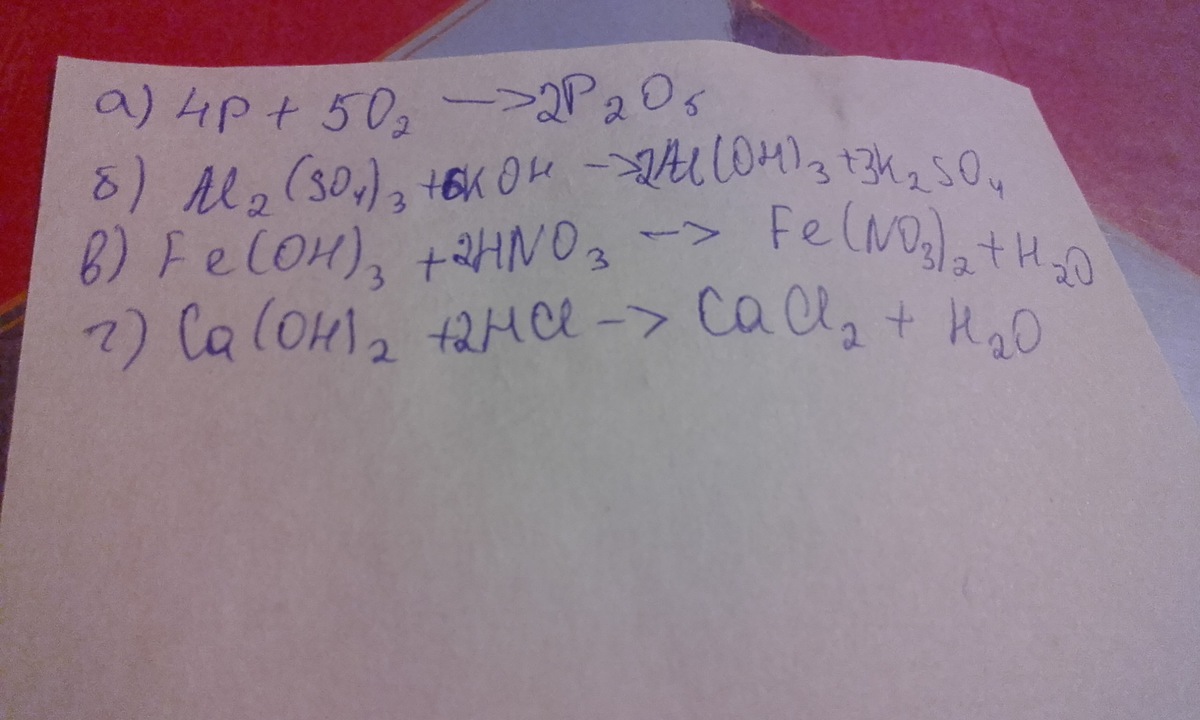 а) 4P + 5O₂ —> 2P₂O₅
б) Al₂(SO₄)₃ + 6KOH —> 2Al(OH)₃ + 3K₂SO₄
в) Fe(OH)₃ + 2HNO₃ —> Fe(NO₃)₂ + H₂O
г) Ca(OH)₂ + 2HCl —> CaCl₂ + H₂O